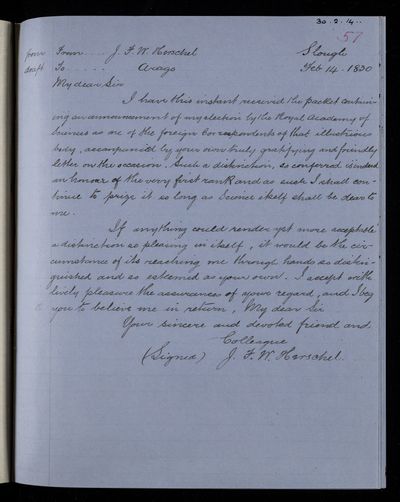 30.2.14..
57
from From .... J. F. W. Herschel Slough
draft To ...... Arago Feb 14. 1830
My dear Sir
I have this instant received the packet contain-
ing an announcement of my election by the Royal Academy of
Sciences as one of the foreign Correspondents of that illustrious
body, accompanied by your own truly gratifying and friendly
letter on the occasion. Such a distinction, so conferred is indeed
an honour of the very first rank and as such I shall con-
tinue to prize it so long as Science itself shall be dear to
me.
If anything could render yet more acceptable
a distinction so pleasing in itself, it would be the cir-
cumstance of its reaching me through hands so distin-
guished and so esteemed as your own. I accept with
lively pleasure the assurances of your regard, and I beg
you to believe me in return, My dear Sir
Your sincere and devoted friend and
Colleague
(Signed) J. F. W. Herschel.